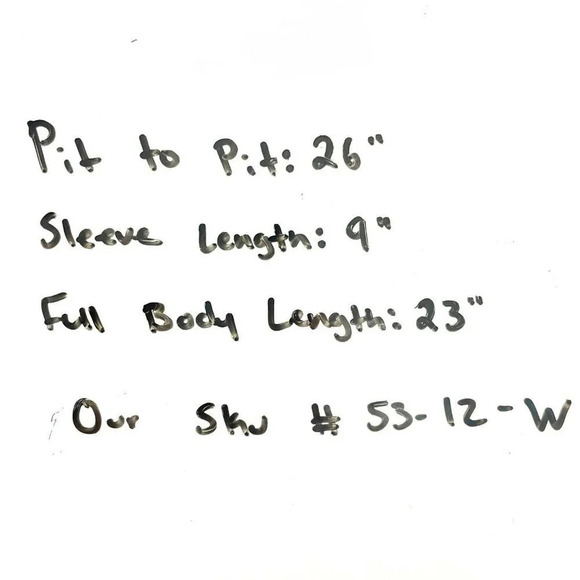 Pit to Pit: 26"
Sleeve Length: 9"
Full Body Length: 23"
Our Sku # 53-12-W